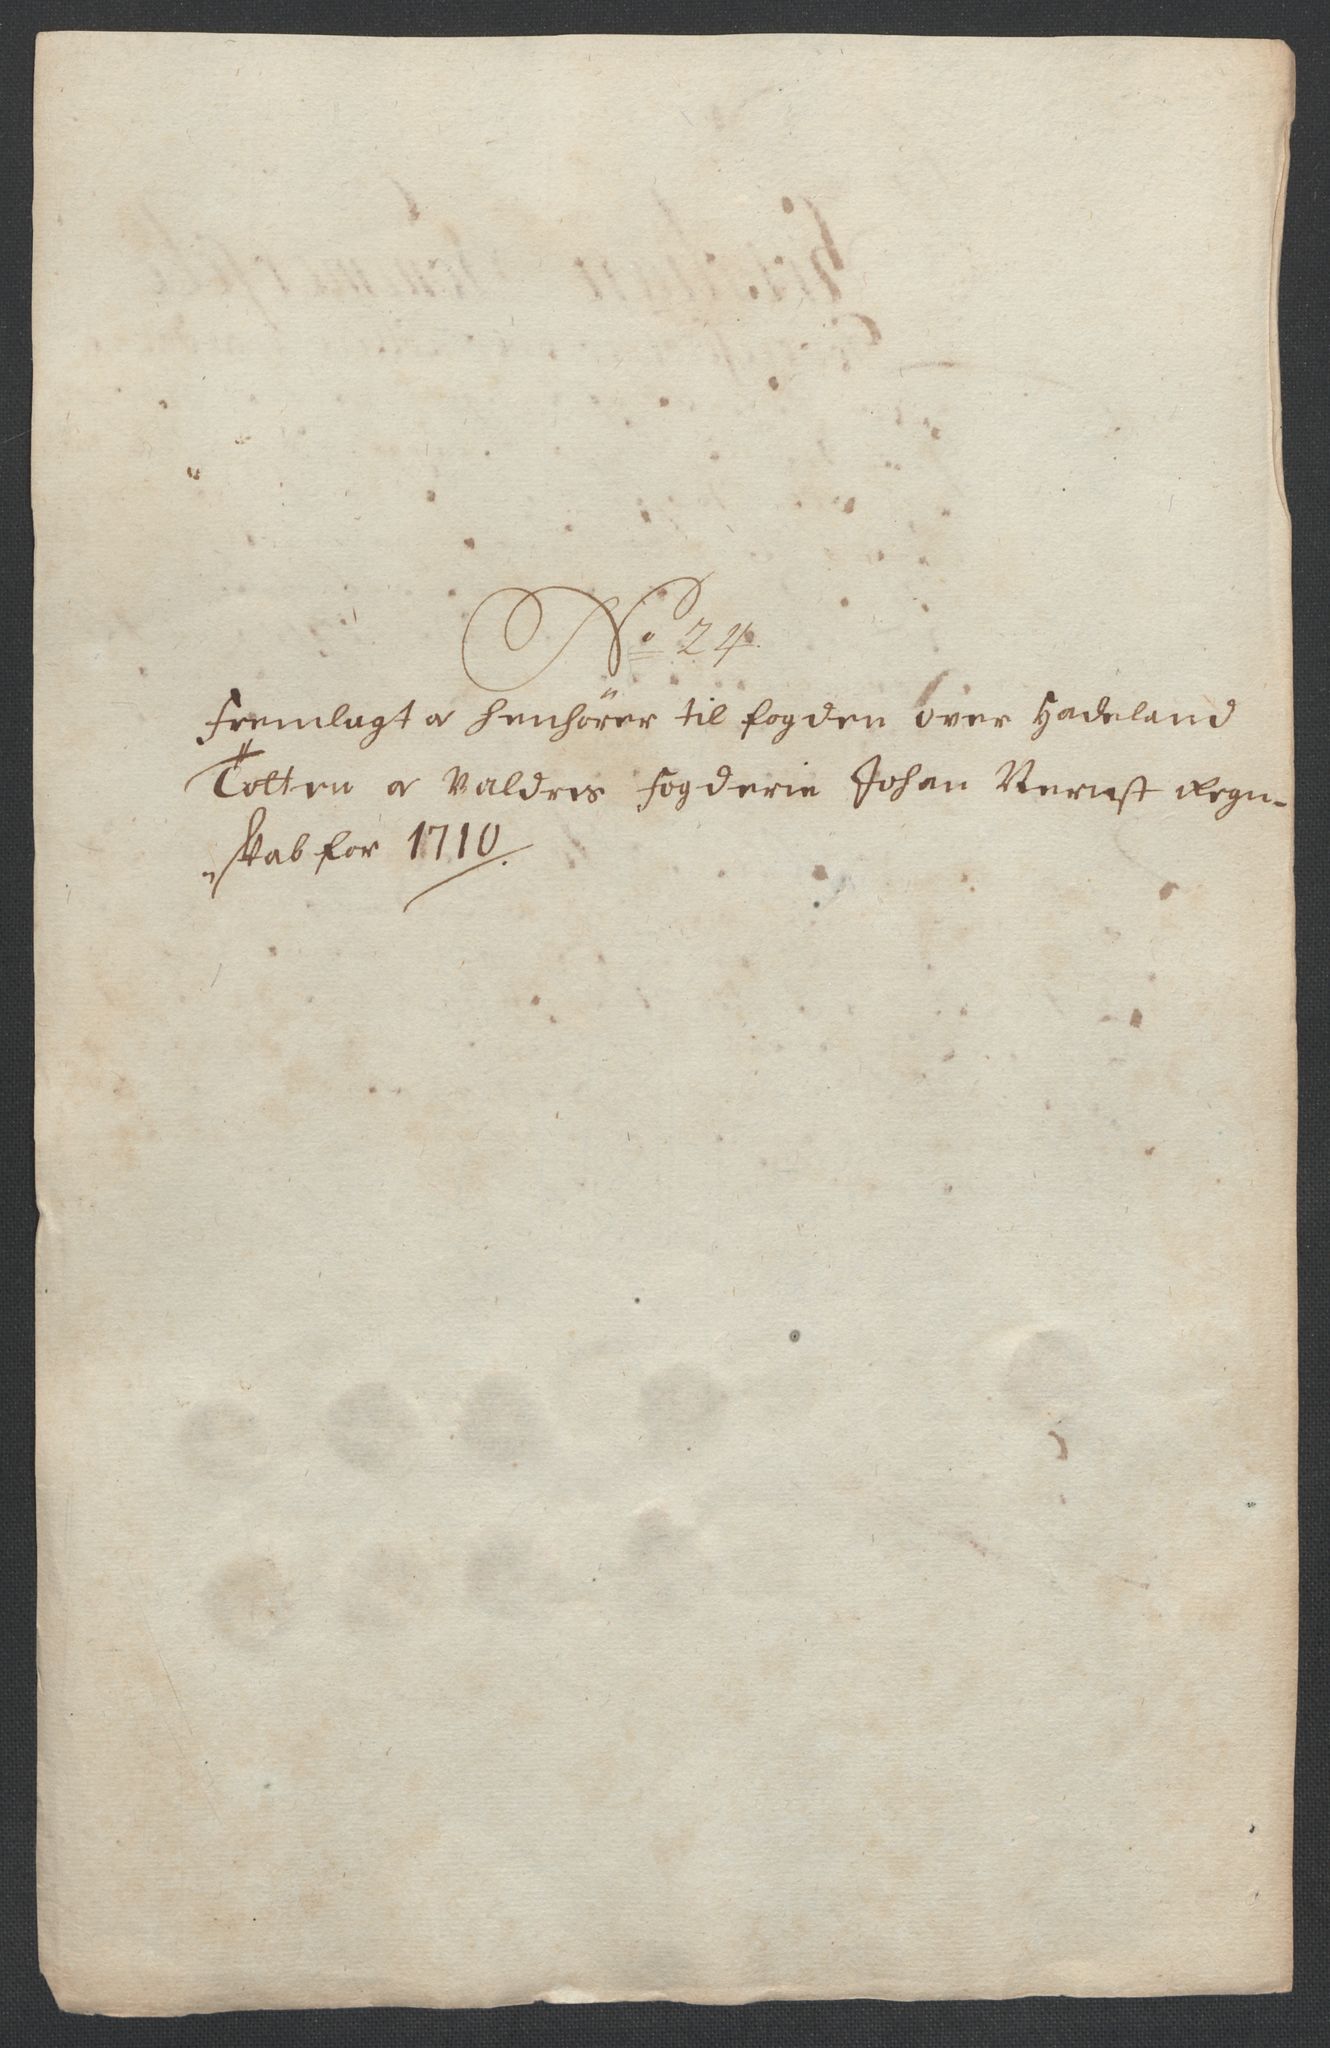 No 24
Fremlagt og henhører til fogden over Hadeland
Totten og Valdres fogderie Johan Neruest Regn-
skab for 1710.